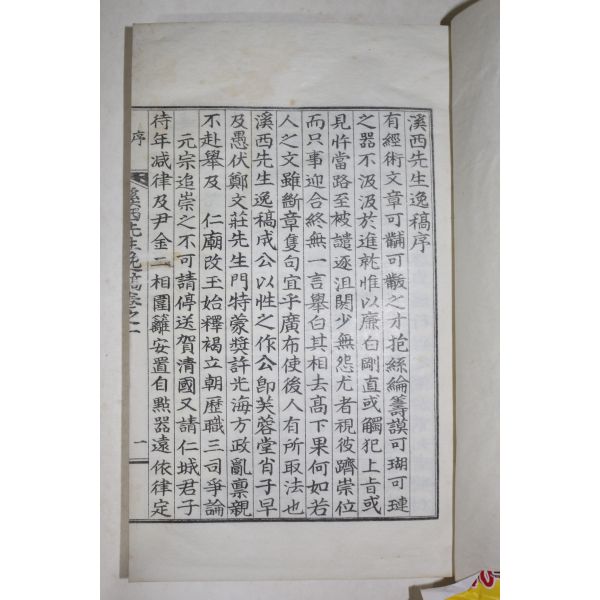 溪西先生逸稿序
有經術文章可黼可黻之才抱絲綸籌謨可瑚可璉
之器不汲汲於進就惟以廉白剛直或觸犯上旨或
見忤當路至被譴逐沮閼少無怨尤者視彼躋崇位
而只事迎合終無一言舉白其相去高下果何如若
人之文雖斷章隻句宜乎廣布使後人有所取法也
溪西先生逸稿成公以性之作公卽芙蓉堂肖子早
及愚伏鄭文莊先生門特蒙奬許光海方政亂禀親
不赴舉及 仁廟改玉始釋褐立朝歷職三司爭論
元宗追崇之不可請停送賀清國又請仁城君子
待年减律及尹金二相圍籬安置自點器遠依律定
序
溪西先生逸稿卷之一
一